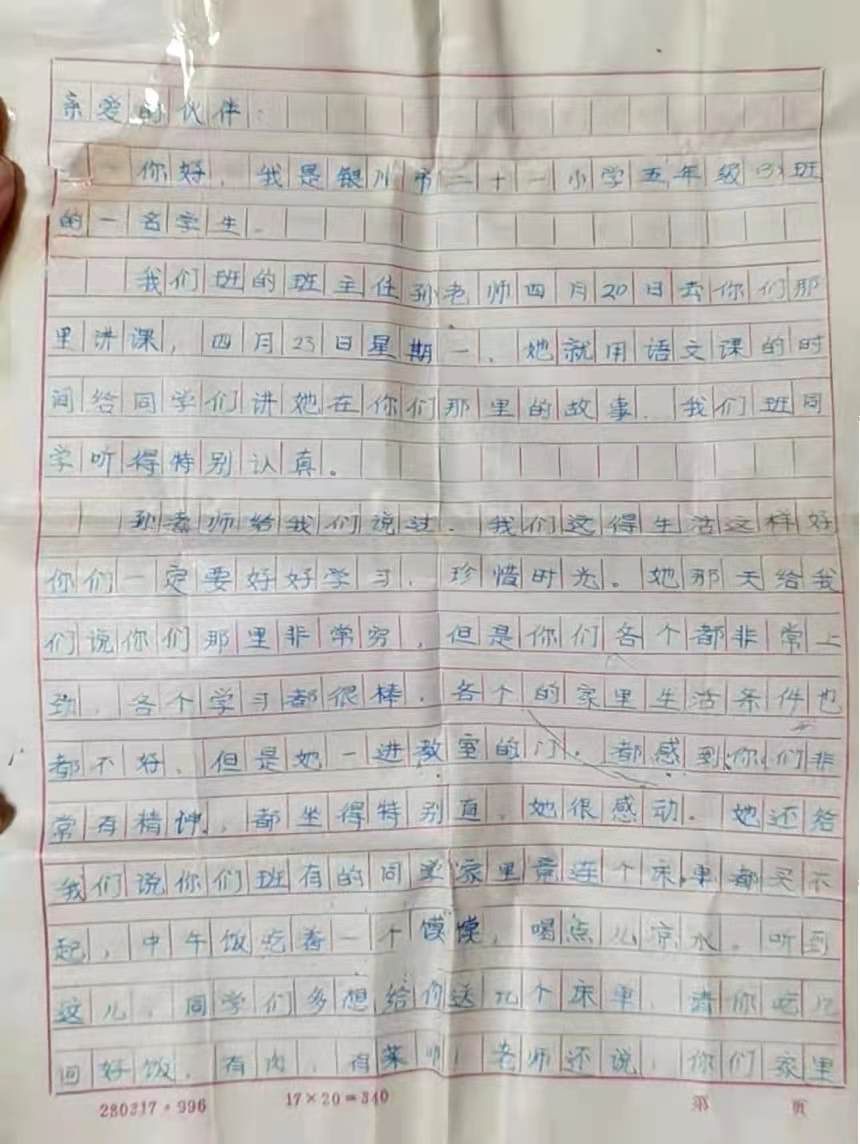 亲爱的伙伴：
你好，我是银川市二十一小学五年级(3)班
的一名学生。
我们班的班主任孙老师四月20日去你们那
里讲课，四月23日星期一，她就用语文课的时
间给同学们讲她在你们那里的故事，我们班同
学听得特别认真。
孙老师给我们说过，我们这得生活这样好
你们一定要好好学习，珍惜时光。她那天给我
们说你们那里非常穷，但是你们各个都非常上
劲，各个学习都很棒，各个的家里生活条件也
都不好，但是她一进教室的门，都感到你们非
常有精神，都坐得特别直，她很感动。她还给
我们说你们班有的同学家里竟连个床单都买不
起，中午饭吃着一个馍馍，喝点儿凉水。听到
这儿，同学们多想给你送几个床单，请你吃几
回好饭，有肉，有菜 老师还说，你们家里
280317·996 17×20=340 第 页